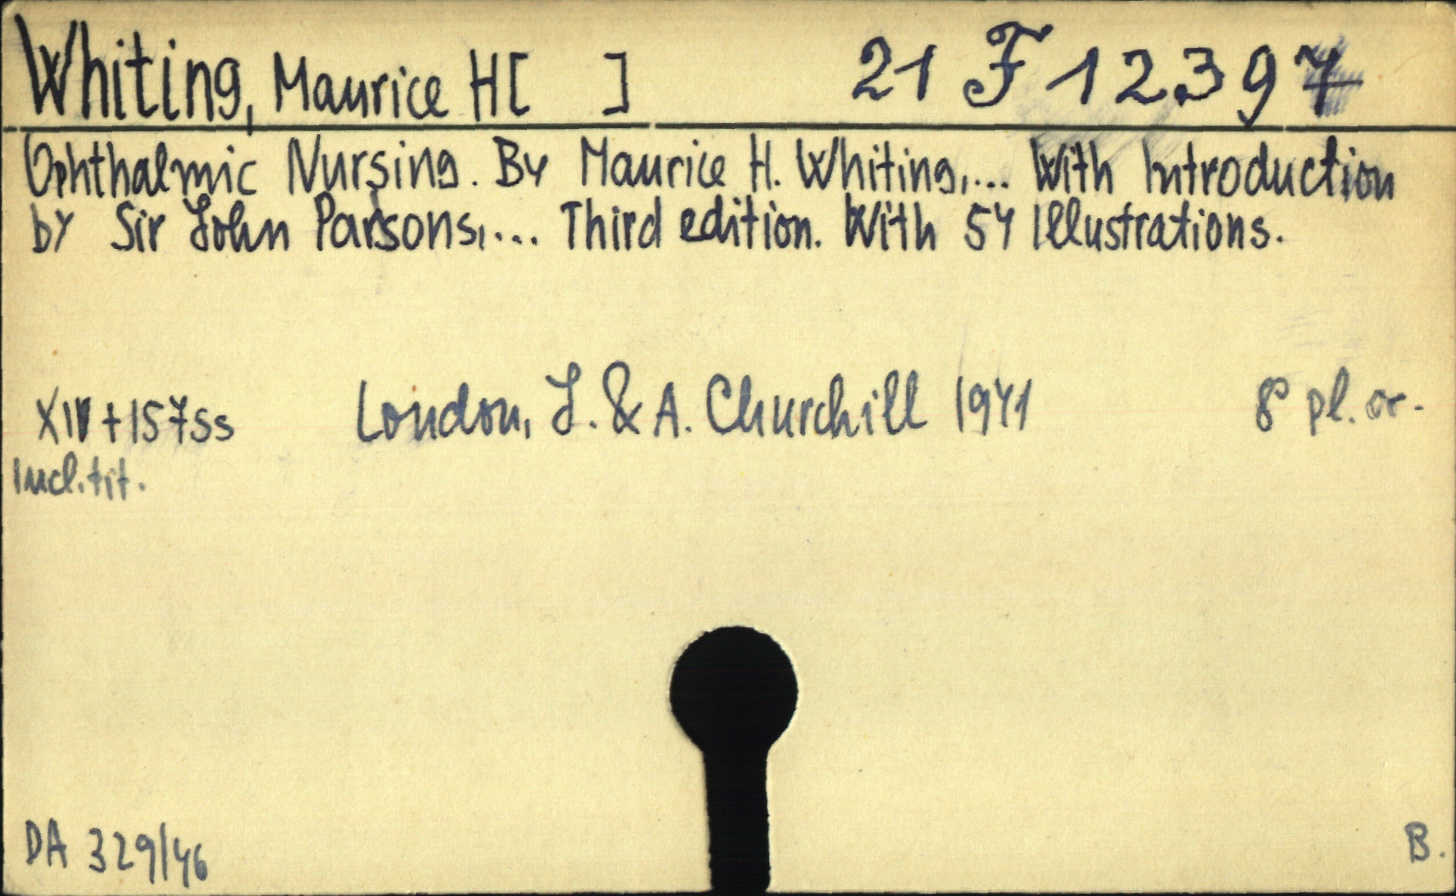 Whiting, Maurice H[ ] 21 F 12397
Ophthalmic Nursing. By Maurice H. Whiting,... With Introduction
by Sir John Parsons,... Third edition. With 54 Illustrations.
XIV+157ss London, J. & A. Churchill 1941 8° pl. or.
Incl. tit.
DA 329/46 B.